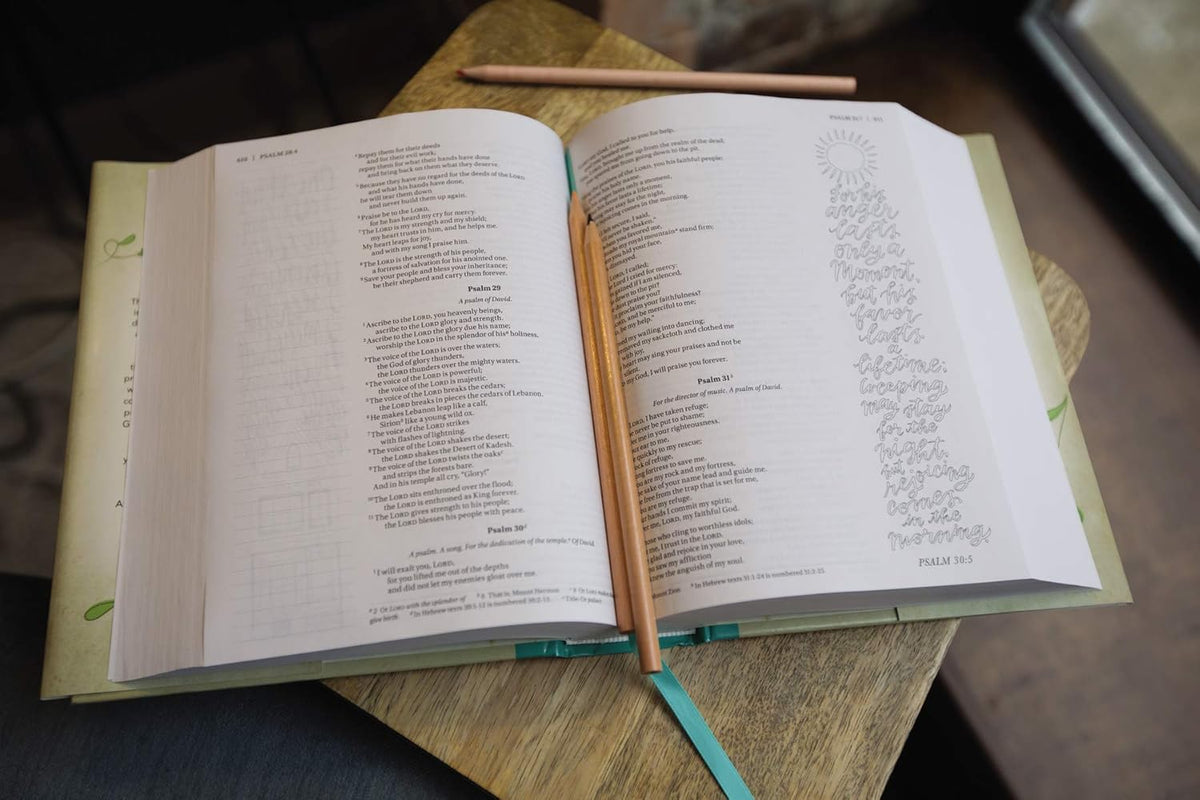 PSALM 28:4
⁴Repay them for their deeds
and for their evil work;
repay them for what their hands have done
and bring back on them what they deserve.
⁵Because they have no regard for the deeds of the LORD
and what his hands have done,
he will tear them down
and never build them up again.
⁶Praise be to the LORD,
for he has heard my cry for mercy.
⁷The LORD is my strength and my shield;
my heart trusts in him, and he helps me.
My heart leaps for joy,
and with my song I praise him.
⁸The LORD is the strength of his people,
a fortress of salvation for his anointed one.
⁹Save your people and bless your inheritance;
be their shepherd and carry them forever.
Psalm 29
A psalm of David.
¹Ascribe to the LORD, you heavenly beings,
ascribe to the LORD glory and strength.
²Ascribe to the LORD the glory due his name;
worship the LORD in the splendor of his holiness.
³The voice of the LORD is over the waters;
the God of glory thunders,
the LORD thunders over the mighty waters.
⁴The voice of the LORD is powerful;
the voice of the LORD is majestic.
⁵The voice of the LORD breaks the cedars;
the LORD breaks in pieces the cedars of Lebanon.
⁶He makes Lebanon leap like a calf,
Sirion like a young wild ox.
⁷The voice of the LORD strikes
with flashes of lightning.
⁸The voice of the LORD shakes the desert;
the LORD shakes the Desert of Kadesh.
⁹The voice of the LORD twists the oaks
and strips the forests bare.
And in his temple all cry, "Glory!"
¹⁰The LORD sits enthroned over the flood;
the LORD is enthroned as King forever.
¹¹The LORD gives strength to his people;
the LORD blesses his people with peace.
Psalm 30
A psalm. A song. For the dedication of the temple. Of David.
¹I will exalt you, LORD,
for you lifted me out of the depths
and did not let my enemies gloat over me.
2 Or LORD with the splendor of 6 That is, Mount Hermon 9 Or LORD makes
give birth In Hebrew texts 30:1-12 is numbered 30:2-13. Title: Or palace
my God, I called to you for help,
me.
brought me up from the realm of the dead;
me from going down to the pit.
praises of the LORD, you his faithful people;
his holy name.
lasts only a moment,
favor lasts a lifetime;
may stay for the night,
rejoicing comes in the morning.
felt secure, I said,
never be shaken."
when you favored me,
made my royal mountain stand firm;
you hid your face,
dismayed.
LORD, I called;
the Lord I cried for mercy:
gained if I am silenced,
down to the pit?
dust praise you?
proclaim your faithfulness?
and be merciful to me;
be my help."
my wailing into dancing;
removed my sackcloth and clothed me
with joy,
heart may sing your praises and not be
silent.
my God, I will praise you forever.
Psalm 31
For the director of music. A psalm of David.
LORD, I have taken refuge;
never be put to shame;
me in your righteousness.
ear to me,
quickly to my rescue;
of refuge,
fortress to save me.
you are my rock and my fortress,
sake of your name lead and guide me.
free from the trap that is set for me,
you are my refuge.
hands I commit my spirit;
me, LORD, my faithful God.
those who cling to worthless idols;
me, I trust in the LORD.
glad and rejoice in your love,
you saw my affliction
knew the anguish of my soul.
Mount Zion In Hebrew texts 31:1-24 is numbered 31:2-25.
for his
anger
lasts
only a
moment,
but his
favor
lasts
a
lifetime;
weeping
may stay
for the
night,
but
rejoicing
comes
in the
morning.
PSALM 30:5